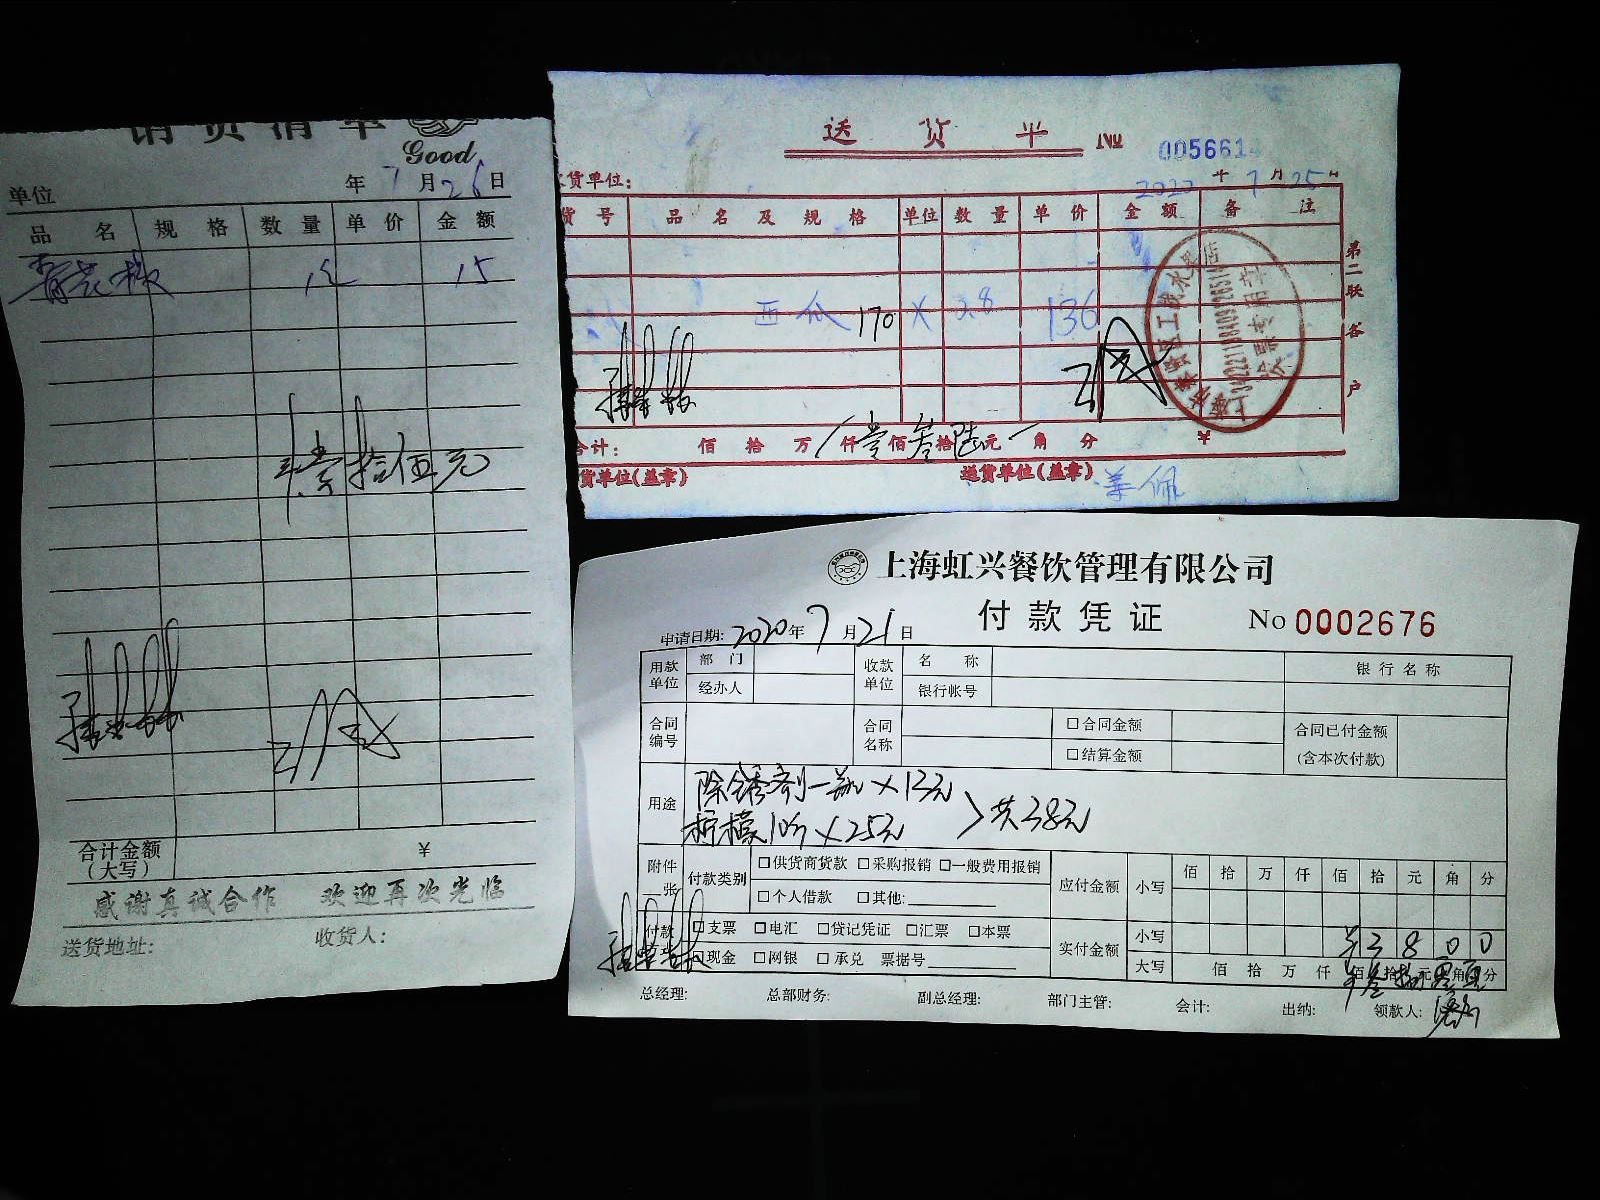 销货清单
Good
单位 年7月26日
品名 规格 数量 单价 金额
青花椒 15
¥壹拾伍元
合计金额 ¥
(大写)
感谢真诚合作 欢迎再次光临
送货地址: 收货人:
送货单 No 0056614
货单位: 2020年7月25日
货号 品名及规格 单位 数量 单价 金额 备注
西瓜 170 × 0.8 136
第二联 客户
合计: 佰 拾 万 仟壹佰叁拾陆元 角 分 ¥
货单位(盖章) 送货单位(盖章)
发票专用章
上海虹兴餐饮管理有限公司
付款凭证 No 0002676
申请日期: 2020年7月21日
用款单位 部门 收款单位 名称 银行名称
经办人 银行帐号
合同编号 合同名称 □合同金额 合同已付金额
□结算金额 (含本次付款)
用途 除锈剂一瓶×13元
柠檬10个×25元 >共38元
附件 张 付款类别 □供货商货款 □采购报销 □一般费用报销 应付金额 小写 佰 拾 万 仟 佰 拾 元 角 分
□个人借款 □其他:
付款 □支票 □电汇 □贷记凭证 □汇票 □本票 实付金额 小写 ¥3800
□现金 □网银 □承兑 票据号 大写 佰 拾 万 仟 佰 拾 元 角 分
总经理: 总部财务: 副总经理: 部门主管: 会计: 出纳: 领款人: